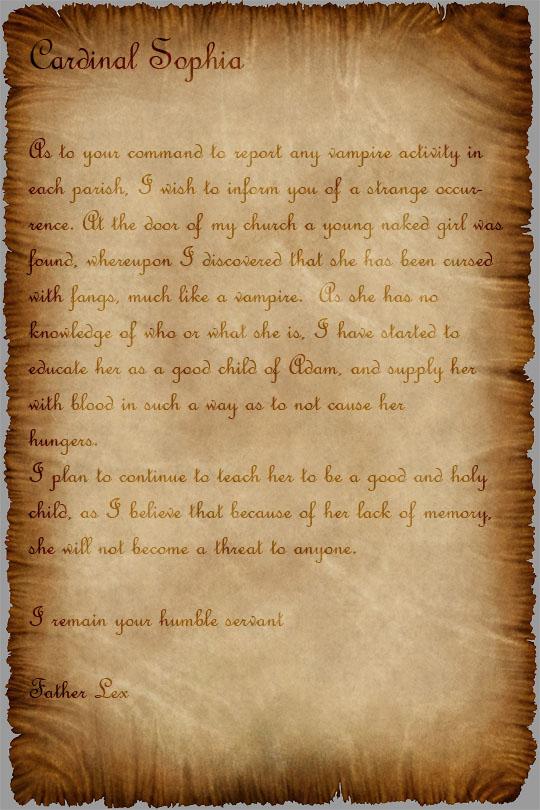 Cardinal Sophia
As to your command to report any vampire activity in
each parish, I wish to inform you of a strange occur-
rence. At the door of my church a young naked girl was
found, whereupon I discovered that she has been cursed
with fangs, much like a vampire.  As she has no
knowledge of who or what she is, I have started to
educate her as a good child of Adam, and supply her
with blood in such a way as to not cause her
hungers.
I plan to continue to teach her to be a good and holy
child, as I believe that because of her lack of memory,
she will not become a threat to anyone.
I remain your humble servant
Father Lex